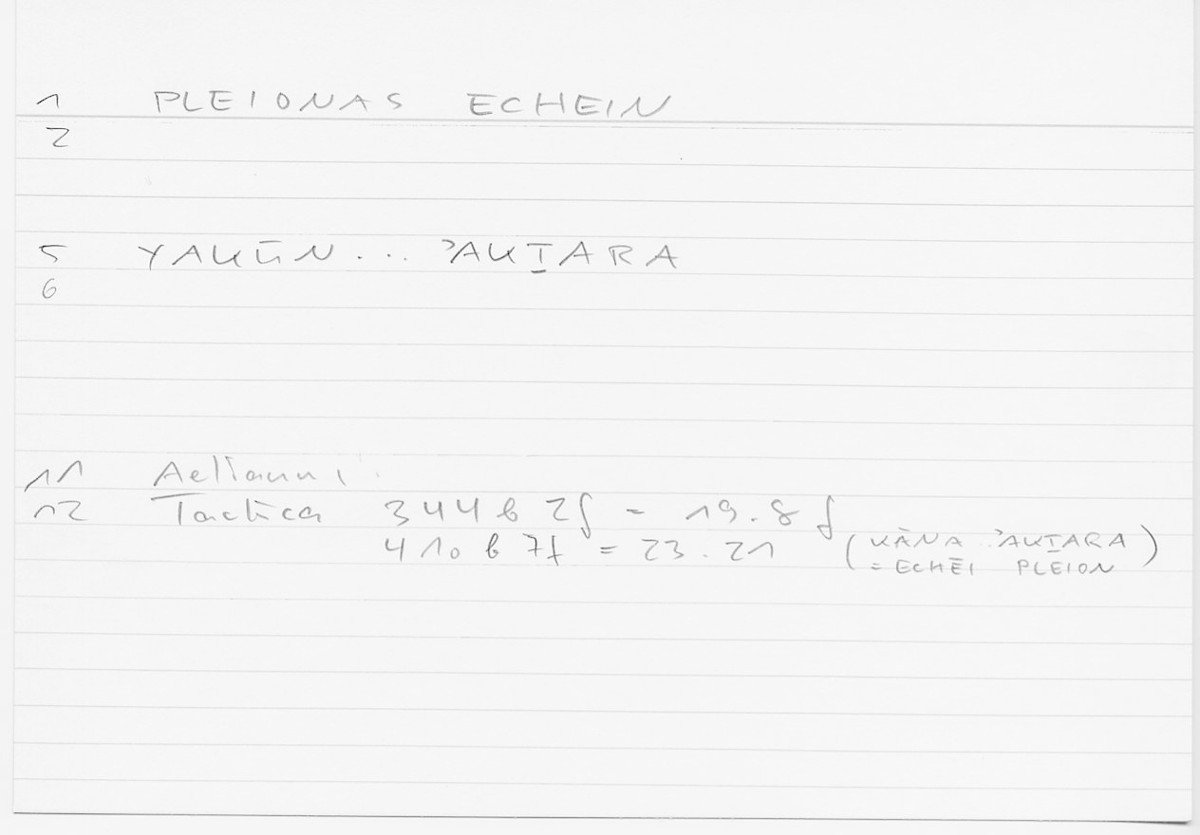 1 PLEIONAS ECHEIN
2
5 YAKŪN... ʾAKṮARA
6
11 Aeliani
12 Tactica 344 b 2f = 19.8 f
410 b 7f = 23.21 (KĀNA ʾAKṮARA)
= ECHĒI PLEION